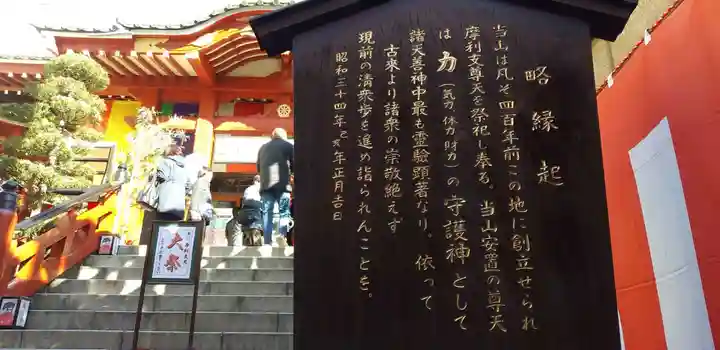 略縁起
当山は凡そ四百年前この地に創立せられ
摩利支尊天を祭祀し奉る。当山安置の尊天
は力(気力、体力、財力)の守護神として
諸天善神中最も霊験顕著なり。依って
古來より諸衆の崇敬絶えず
現前の清衆歩を進め詣られんことを。
昭和三十四年乙亥年正月吉日
摩利支天
大祭